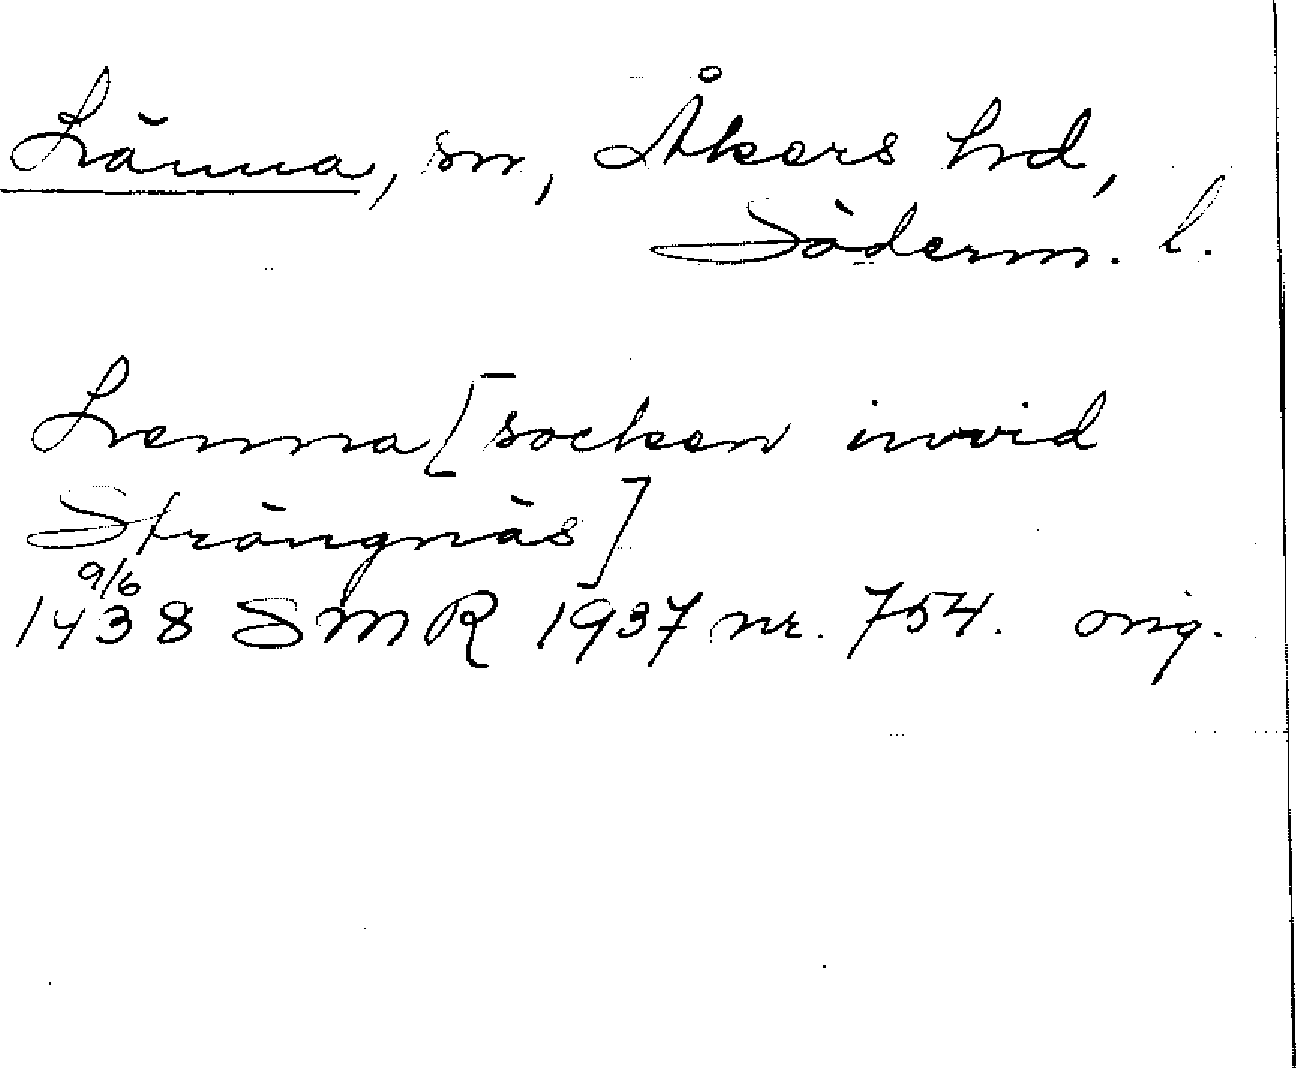 Länna, sn, Åkers hd,
Söderm. l.
Lenna [socken invid
Strängnäs]
9/6
1438 SMR 1937 nr. 754. orig.